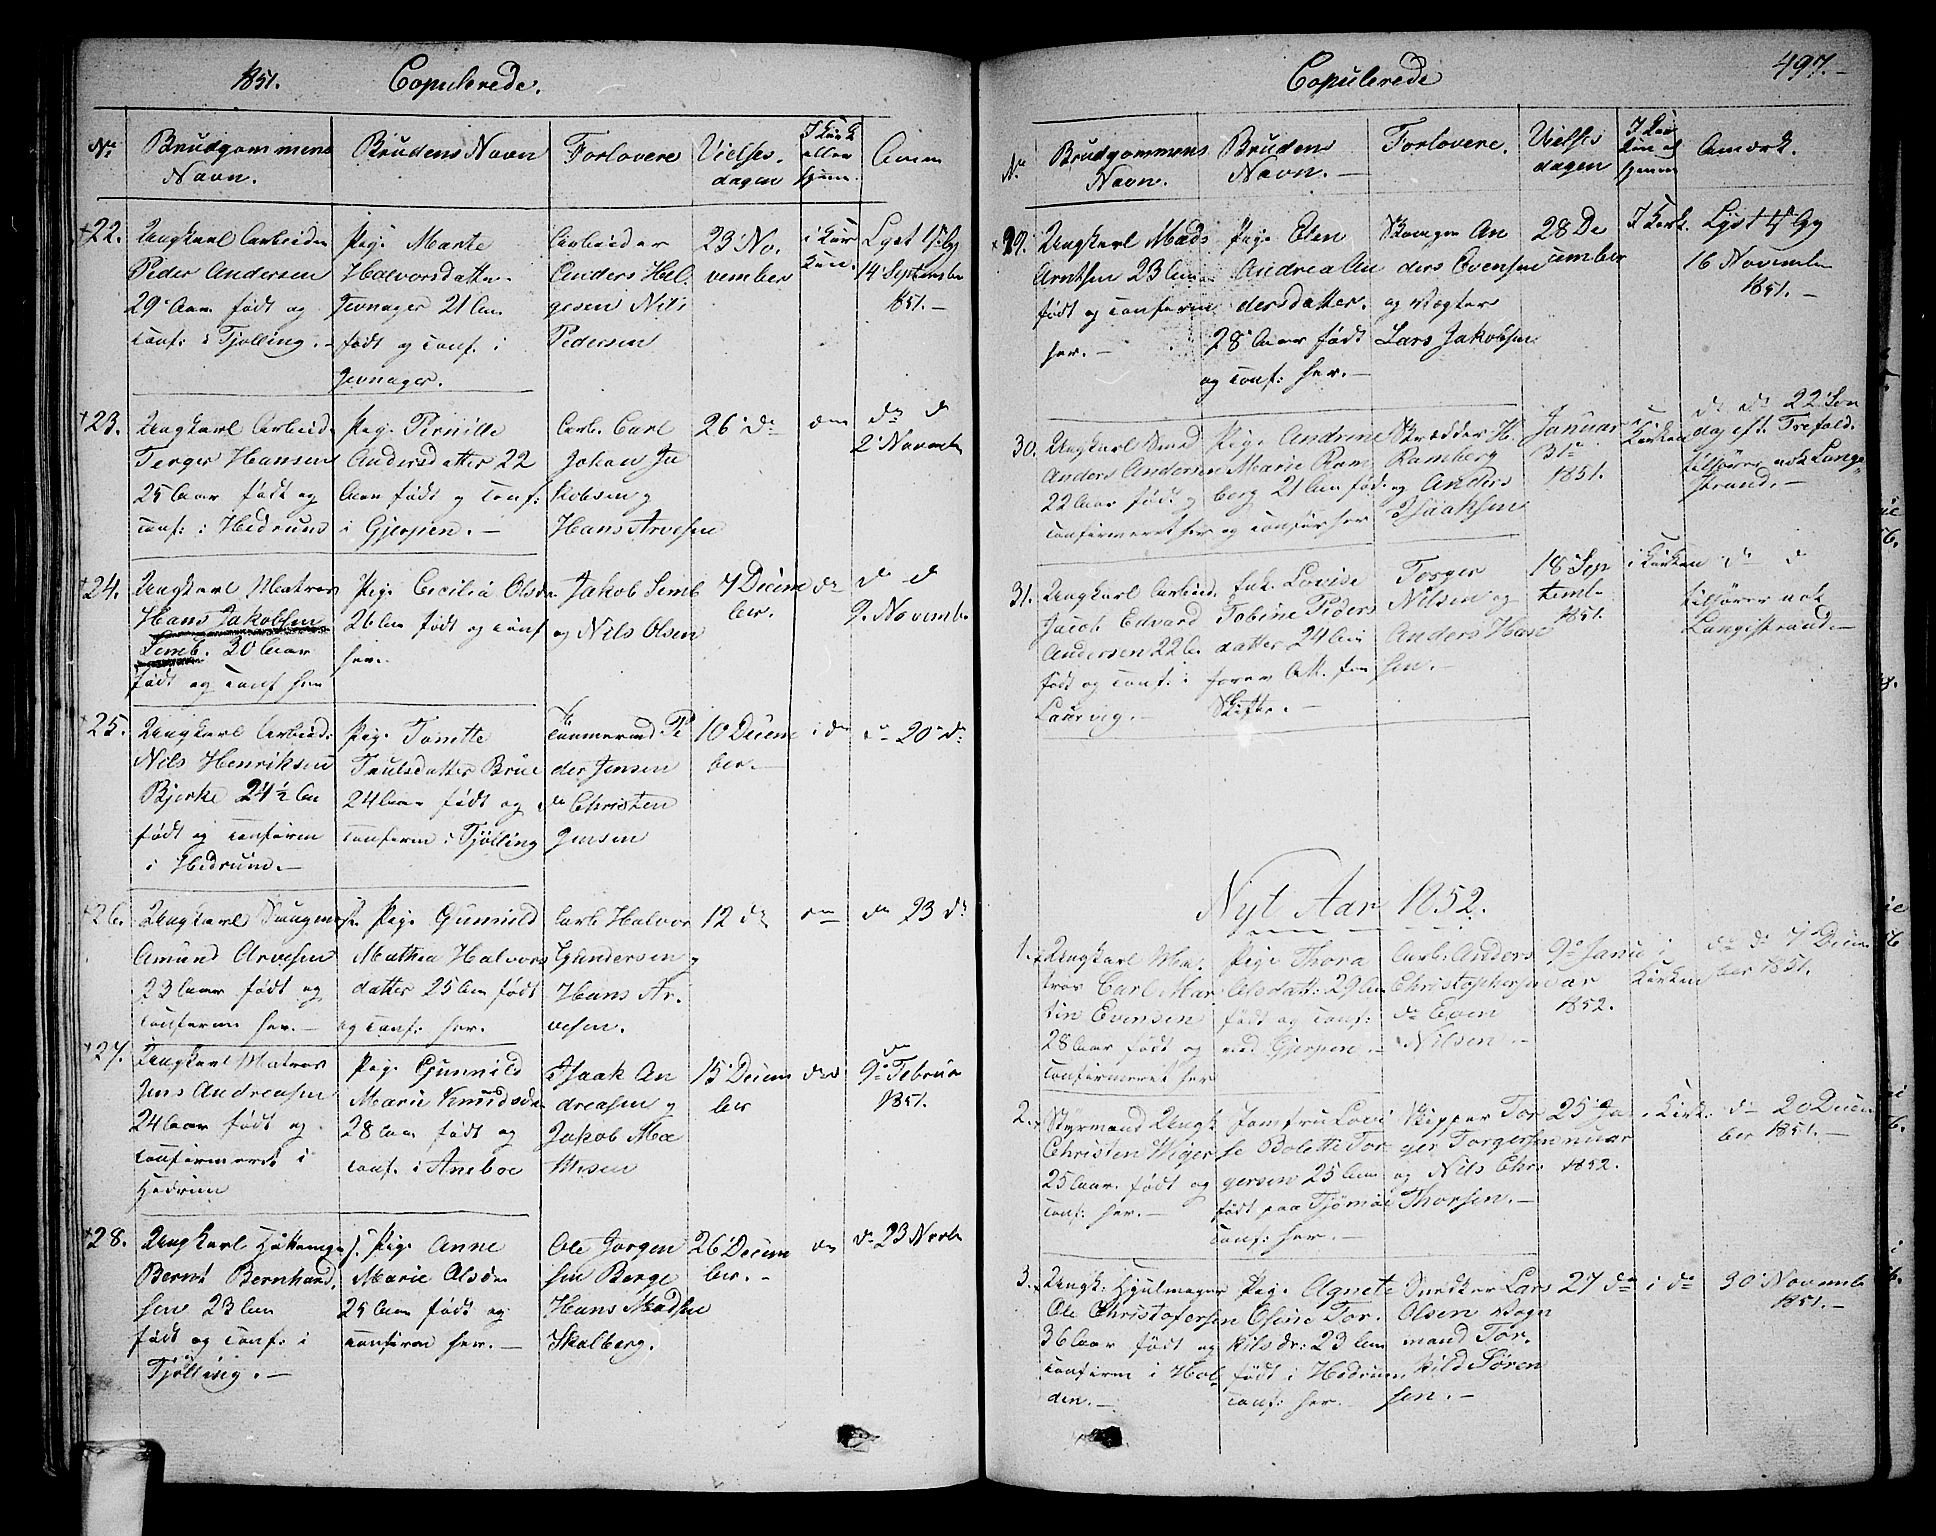 1851. Copulerede.
No
Brudgommens
Navn.
Brudens Navn
Forlovere
Vielses-
dagen
I Kirk
eller
hjem.
Anm
22.
Ungkarl Arbeider
Peder Andersen
29 Aar født og
conf: i Tjølling. -
Pige Marte
Halvorsdatter
Jevnager 21 Aar
født og conf. i
Jevnager.
Arbeider
Anders Hel
gesen Nils
Pedersen
23 No-
vember
i Kir
ken.
Lyst 1ste Gg
14 Septembr
1851. -
23.
Ungkarl Arbeid.
Terger Hansen
25 Aar født og
conf: i Hedrum
Pige Pernille
Andersdatter 22
Aar født og conf:
i Gjerpen. -
Arb. Carl
Johan Ja
kobsen og
Hans Arvesen
26 do
do
do d
2 Novemb
24.
Ungkarl Matros
Hans Jakobsen
Semb. 30 Aar
født og conf her
Pige Cecilia Olsdr
26 Aar født og conf
her.
Jakob Semb
og Nils Olsen
7 Decem
ber.
do
do d
9. Novemb.
25.
Ungkarl Arbeid:
Nils Henriksen
Bjerke 24½ Aar
født og conferm
i Hedrum. -
Pige Tomette
Trulsdatter Brue
24 Aar født og
conferm i Tjølling
Tømmermd Pe
der Jensen
do Christen
Jensen
10 Decem
ber. -
i do
do 20 do
26.
Ungkarl Saugm
Amund Arvesen
23 Aar født og
conferm her. -
Pige Gunnild
Mathea Halvors
datter 25 Aar født
og conf: her.
Arb Halvor
Gundersen og
Hans Ar-
vesen.
12 do
do
do 23 do
27.
Ungkarl Matros
Jens Andreasen
24 Aar født og
confermeret i
Hedrum
Pige Gunnild
Marie Knudsdr
28 Aar født og
conf. i Aneboe
Isaak An
dreasen og
Jakob Ma
thisen
15 Decem
ber
do
do
9 Februar
1851.
28.
Ungkarl
Bernt Bernhard
sen 23 Aar
født og conf: i
Tjølling. -
Pige Anne
Marie Olsdr
25 Aar født og
conferm her. -
Ole Jørgen
sen Berge
Hans Madsen
Skalberg.
26 Decem
ber. -
do
do 23 Novbr
Copulerede
497. -
No
Brudgommens
Navn.
Brudens
Navn. -
Forlovere.
Vielses
dagen
I Kir
ken el
hjemm
Anmærk.
29.
Ungkarl Mads
Arntsen 23 Aar
født og conferm
her. -
Pige Elen
Andrea An
dersdatter.
28 Aar født
og conf: her. -
An
ders Evensen
og Vægter
Lars Jakobsen
28 De
cember
I Kirk.
Lyst 1ste Gg
16 Novembr
1851. -
30.
Ungkarl Smed
Anders Andersen
22 Aar født og
confermeret her
Pige Andrine
Marie Ram
berg 21 Aar født
og conf her
Skrædder H.
Ramberg
og Anders
Isaaksen
Januar
31te
1851.
i
Kirken
do do 22 Søn
dag eft. Trefold.
tilhører nok Lange-
strand. -
31.
Ungkarl Arbeid.
Jacob Edvard
Andersen 22 A.
født og conf: i
Laurvig. -
Enk. Lovise
Tobine Peders
datter 24 Aar
forev. Att. fra
Skifte. -
Torger
Nilsen og
Anders Han
sen. -
18 Sep
tembr
1851.
i Kirken
do d
tilhører nok
Langestrand. -
Nyt Aar 1852.
1.
Ungkarl Ma-
tros Carl Mar
tin Evensen
28 Aar født og
confermeret her
Pige Thora
Olsdatt: 29 Aar
født og conf:
ved Gjerpen. -
Arb: Anders
Christophersen
do Even
Nilsen. -
9 Janu
ar
1852.
i
Kirken
do do 7 Decem
ber 1851.
2.
Styrmand Ungk
Christen Wiger
25 Aar. født og
conf: her. -
Jomfru Lovi
se Bolette Tor
gersen 25 Aar
født paa Tjømøe
conf: her. -
Skipper Tor
ger Torgersen
og Nils Chr:
Thorsen. -
25 Ja
nuar
1852.
i Kirk:
do 20 Decem
ber 1851. -
3.
Ungk: Hjulmager
Ole Christofersen
36 Aar født og
conferm i Hol
den. -
Pige Agnete
Osine Tor-
kilsdr: 23 Aar
født i Hedrum,
conf: her. -
Snedker Lars
Olsen Vogn
mand Tor-
kild Søren
sen. -
27 do
i do
30 Novemb
1851. -